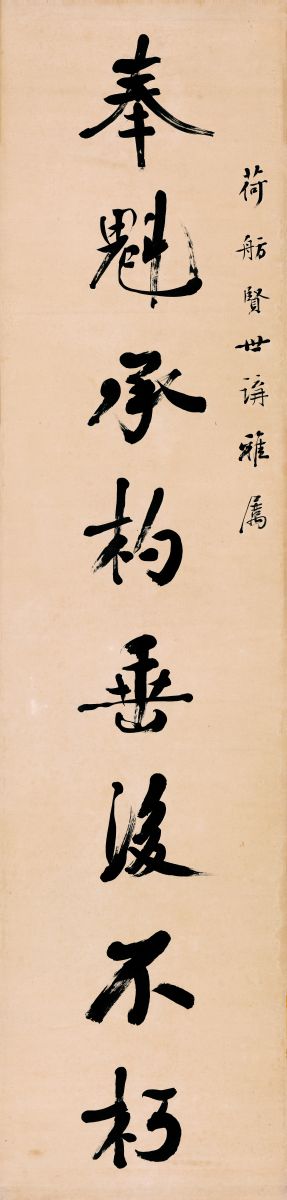 荷舫賢世講雅屬
奉魁承杓垂後不朽